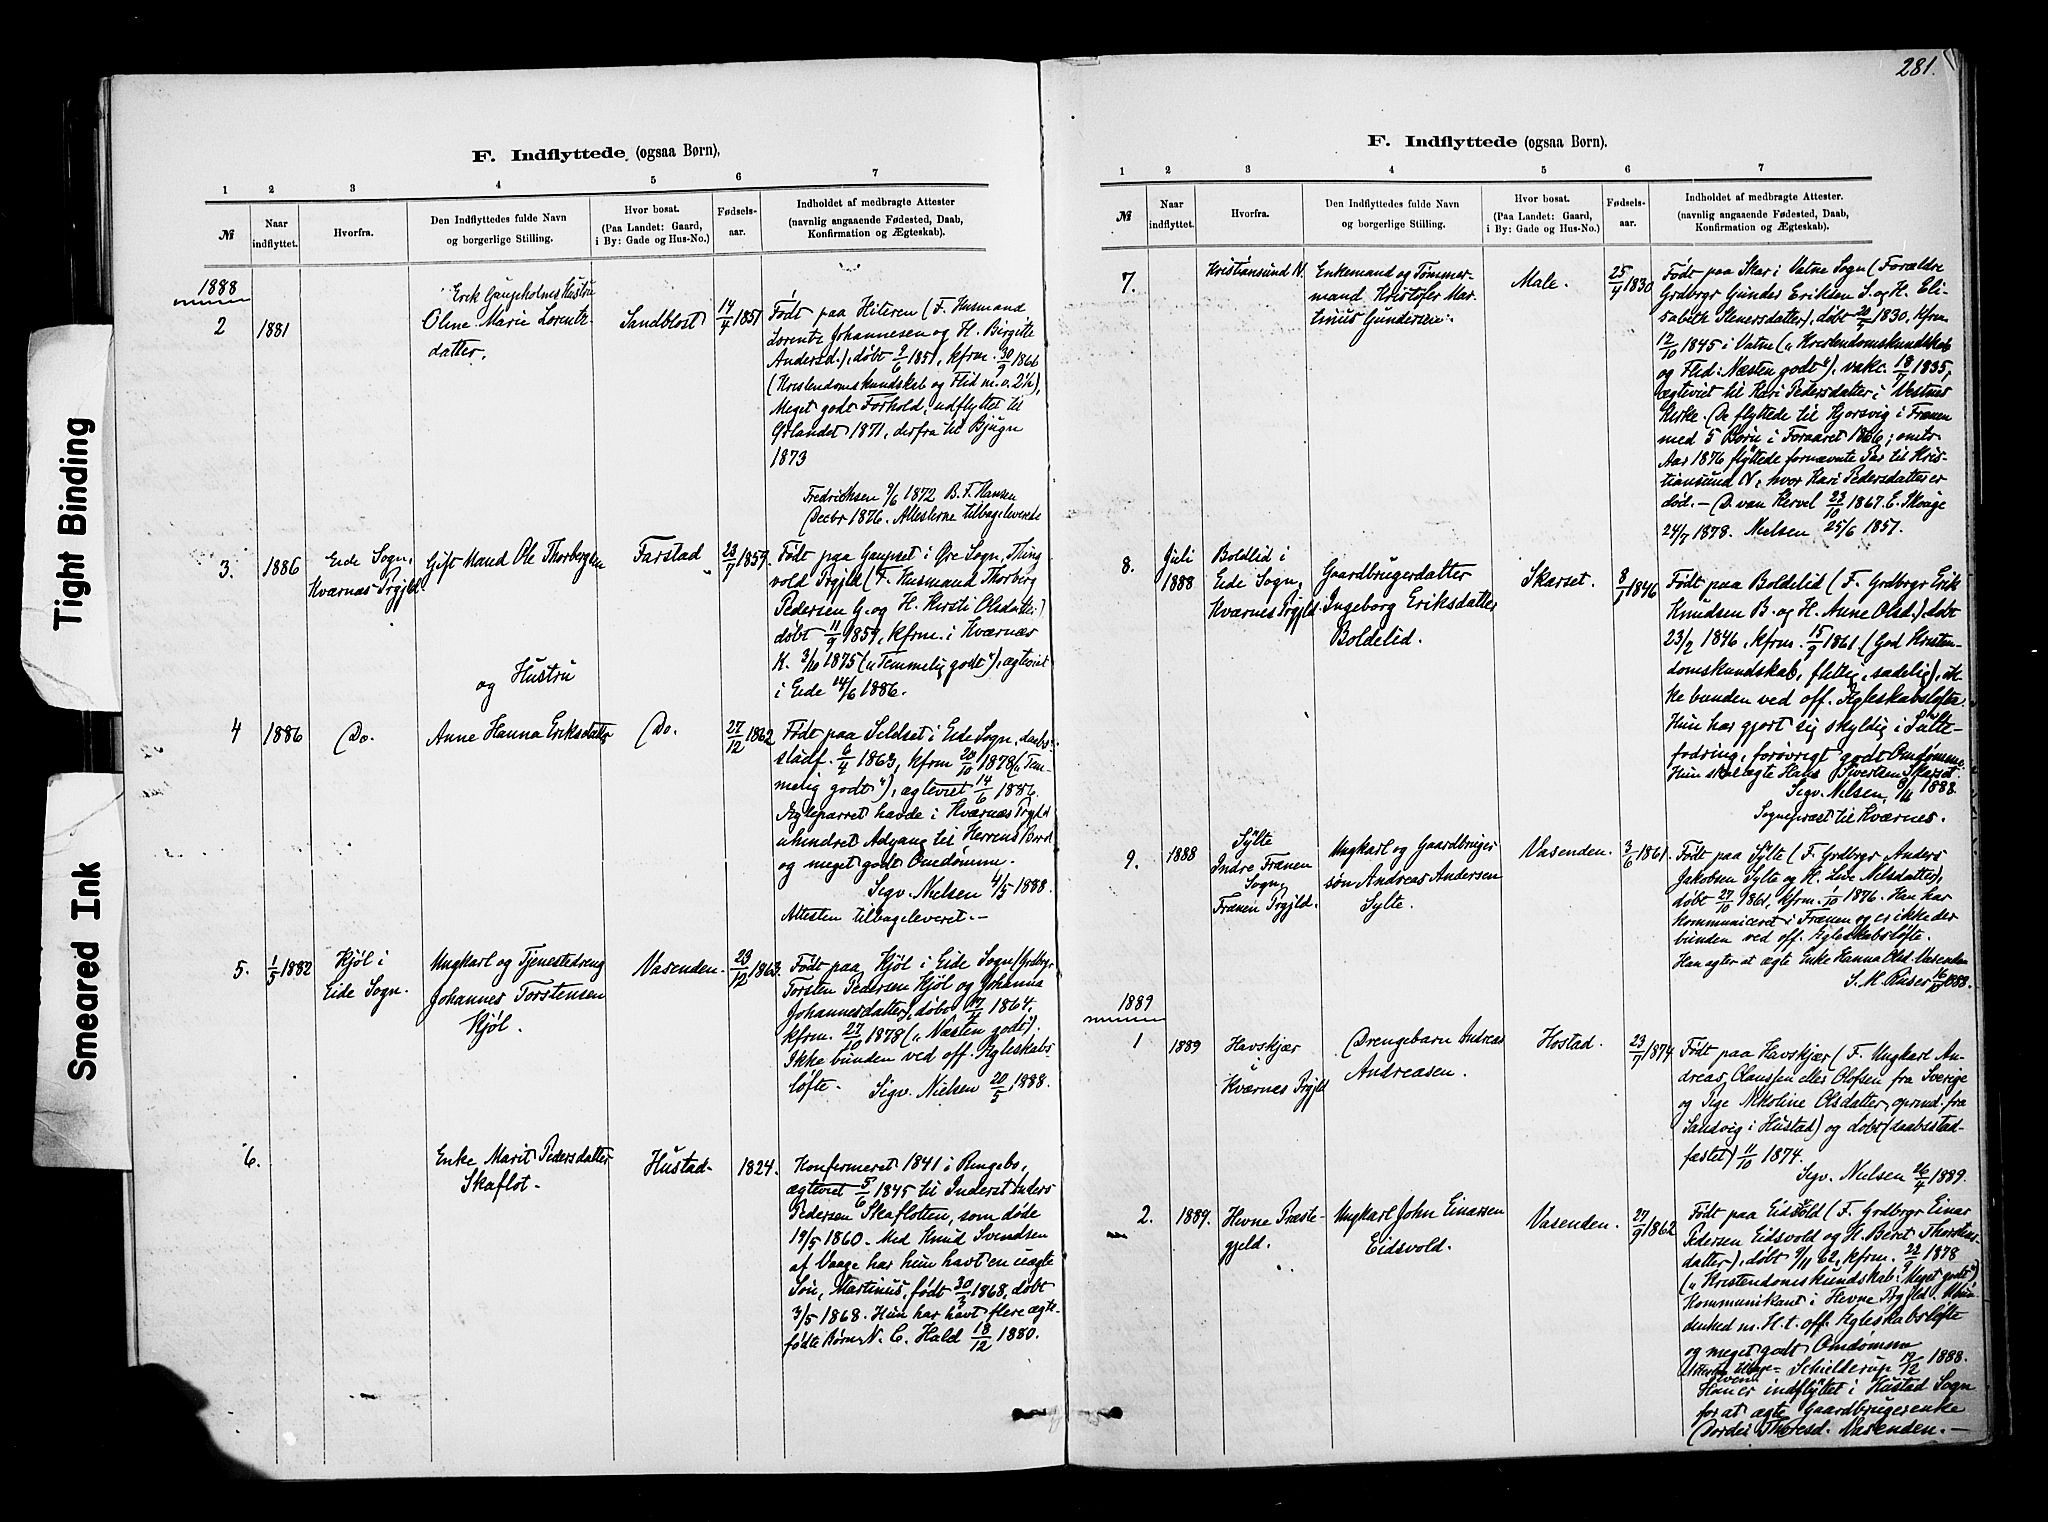 Tight Binding
Smeared Ink
F. Indflyttede (ogsaa Børn),
1 2 3 4 5 6 7
№
Naar
indflyttet.
Hvorfra.
Den Indflyttedes fulde Navn
og borgerlige Stilling.
Hvor bosat.
(Paa Landet: Gaard,
i By: Gade og Hus-No.)
Fødsels-
aar.
Indholdet af medbragte Attester
(navnlig angaaende Fødested, Daab,
Konfirmation og Ægteskab).
1888
2
1881
Erik Gaupholms Hustru
Oline Marie Lorents-
datter.
Sandblost
14/4 1851
Født paa Hiteren (F. Husmand
Lorents Johannesen og H. Birgitte
Andersd.), døbt 9/6 1851, kfrm. 30/9 1866
(Kristendomskundskab og Flid m. v. 2½),
Meget godt Forhold, udflyttet til
Ørlandet 1871, derfra til Bjugn
1873
Fredrichsen 9/6 1872 B. F. Hansen
Decbr 1876. Attesterne tilbageleverede
3.
1886
Eide Sogn,
Kværnæs Prgjld.
Gift Mand Ole Thorbergsen
og Hustru
Farstad
23/7 1859
Født paa Gaupset i Øre Sogn, Thing
vold Prgjld (F. Husmand Thorberg
Pedersen G. og H. Kirsti Olsdatter)
døbt 11/9 1859, kfrm. i Kværnæs
K. 3/10 1875 („Temmelig godt"), ægteviet
i Eide 14/6 1886.
4
1886
Do.
Anne Hanna Eriksdatter
Do.
27/12 1862
Født paa Seldset i Eide Sogn, daabs-
stadf. 6/4 1863, kfrm 20/10 1878 („Tem-
melig godt"), ægteviet 14/6 1886.
Ægteparret havde i Kværnæs Prgjld
uhindret Adgang til Herrens Bord
og meget godt Omdømme.
Sigv. Nielsen 4/5 1888.
Attesten tilbageleveret.—
5.
1/5 1882
Kjöl i
Eide Sogn.
Ungkarl og Tjenestedreng
Johannes Torstensen
Kjöl.
Vasenden.
23/12 1863.
Født paa Kjöl i Eide Sogn (Grdbgr
Torsten Pedersen Kjöl og Johanna
Johannesdatter), døbt 17/4 1864,
kfrm. 27/10 1878 („Næsten godt");
Ikke bunden ved off. Ægteskabs
løfte. Sigv. Nielsen 20/5 1888.
6.
Enke Marit Pedersdatter
Skaflot.
Hustad
1824.
Konfirmeret 1841 i Ringebo,
ægteviet 5/6 1845 til Inderst Anders
Pedersen Skaflotten, som døde
19/5 1860. Med Knud Svendsen
af Vaage har hun havt en uægte
Søn, Martinus, født 30/3 1868, døbt
3/5 1868. Hun har havt flere ægte-
fødte Børn. N. C. Hald 18/12 1880.
281.
F. Indflyttede (ogsaa Børn).
1 2 3 4 5 6 7
№
Naar
indflyttet.
Hvorfra.
Den Indflyttedes fulde Navn
og borgerlige Stilling.
Hvor bosat.
(Paa Landet: Gaard,
i By: Gade og Hus-No.)
Fødsels-
aar.
Indholdet af medbragte Attester
(navnlig angaaende Fødested, Daab,
Konfirmation og Ægteskab).
7.
Kristiansund N.
Enkemand og Tømmer-
mand Kristofer Mar-
tinus Gundersen.
Male.
25/4 1830
Født paa Skar i Vatne Sogn (Forældre
Grdbrgr Gunder Eriksen S. og H. Eli-
sabeth Stenersdatter), døbt 20/5 1830, kfrm
12/10 1845 i Vatne („Kristendomskundskab
og Flid: Næsten godt"), vakc. 18/7 1835,
ægteviet til Kari Pedersdatter i Vestnes
Kirke. De flyttede til Hjorsvig i Frænen
med 5 Børn i Foraaret 1866; omtr.
Aar 1876 flyttede fornævnte Par til Kris-
tiansund N., hvor Kari Pedersdatter er
død.— D. van Kervel 23/10 1867. E. Skouge
24/7 1878. Nielsen 25/6 1851.
8.
Juli
1888
Boldlid i
Eide Sogn,
Kværnes Prgjld.
Gaardbrugerdatter
Ingeborg Eriksdatter
Boldelid.
Skarset.
8/1 1846
Født paa Boldelid (F. Grdbrgr Erik
Knudsen B. og H. Anne Olsd.), døbt
23/2 1846, kfrm. 15/9 1861 (God Kristen-
domskundskab, flittig, sædelig), ik-
ke bunden ved off. Ægteskabsløfte.
Hun har gjort sig skyldig i Sulte-
fodring, forøvrigt godt Omdømme.
Hun skal ægte Hans Sivertsen Skarset
Sigv. Nielsen, 1888.
Sogneprest til Kværnes.
9.
1888
Sylte
Indre Frænen
Sogn,
Frænen Prgjld.
Ungkarl og Gaardbruger
søn Andreas Andersen
Sylte.
Vasenden.
3/6 1861.
Født paa Sylte (F. Grdbrgr Anders
Jakobsen Sylte og H. Live Nilsdatter),
døbt 27/10 1861, kfrm. 1/10 1876. Han har
kommuniceret i Frænen og er ikke der
bunden ved off. Ægteskabsløfte.
Han agter at ægte Enke Hanna Olsd. Vasenden
S. M. Räser 16/10 1888.
1889
1
1889
Havskjær
Kværnes Prgjld
Drengebarn Andreas
Andreasen.
Hostad.
23/7 1874
Født paa Havskjær (F. Ungkarl An-
dreas Olaussen eller Olofsen fra Sverige
og Pige Nikoline Olsdatter, oprind. fra
Sandvig i Hustad) og døbt (daabsstad-
fæstet) 11/10 1874.
Sigv. Nielsen 26/4 1889.
2.
1889.
Hevne Præste-
gjeld.
Ungkarl John Einarsen
Eidsvold.
Vasenden.
27/9 1862
Født paa Eidsvold (F. Grdbrgr Einar
Pedersen Eidsvold og H. Beret Thorstens-
datter), døbt 9/11 62, kfrm. 22/9 1878
(„Kristendomskundskab: Meget godt")
Kommunikant i Hevne Prgjld.
denhed m. H. t. off. Ægteskabsløfte
og meget godt Omdømme
Schielderup 12/12 1888.
Han er indflyttet i Hustad Sogn
for at ægte Gaardbrugerenke
Dordei Thoresd. Vasenden.—